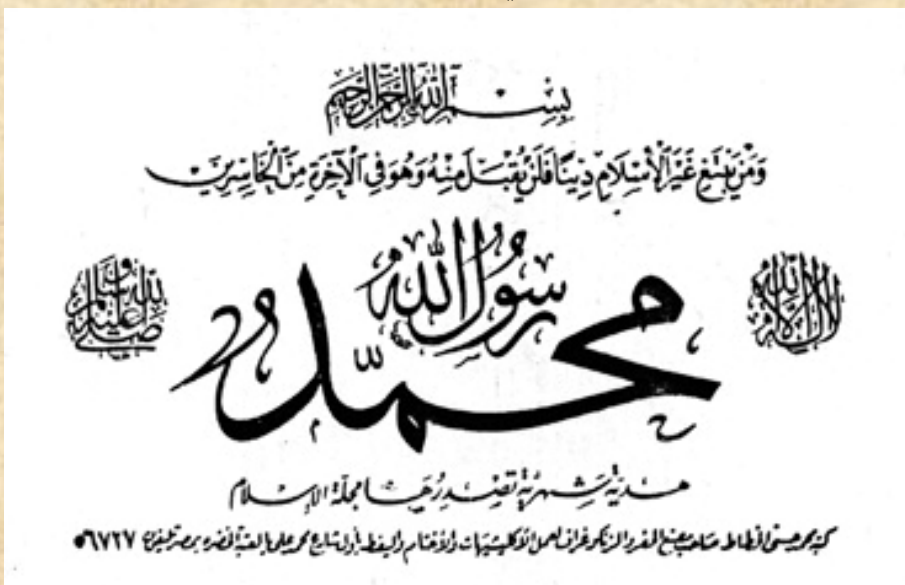 بِسْمِ اللهِ الرَّحْمٰنِ الرَّحِيمِ
وَمَنْ يَبْتَغِ غَيْرَ الْأِسْلَامِ دِينًا فَلَنْ يُقْبَلَ مِنْهُ وَهُوَ فِي الْآخِرَةِ مِنَ الْخَاسِرِينَ
لا إله إلا الله
محمد رسول الله
صلى الله عليه وسلم
هدية شهرية تصدرها مجلة الإسلام
كتبه محمد حسني الخطاط صاحب مصنع الحفر والزنكوغراف لعمل الأكليشيهات والأختام واليفط بأول شارع محمد علي بالعتبة الخضره بمصر تليفون ٥٦٧٢٧